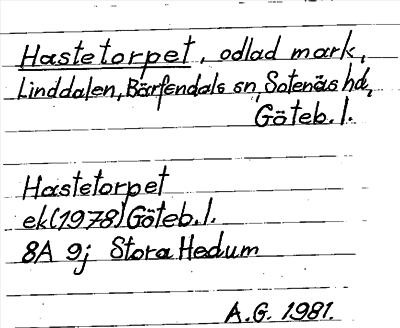 Hastetorpet, odlad mark,
Linddalen, Bärfendals sn, Sotenäs hd,
Göteb. l.
Hastetorpet
ek (1978) Göteb. l.
8A 9j Stora Hedum
A.G. 1981.